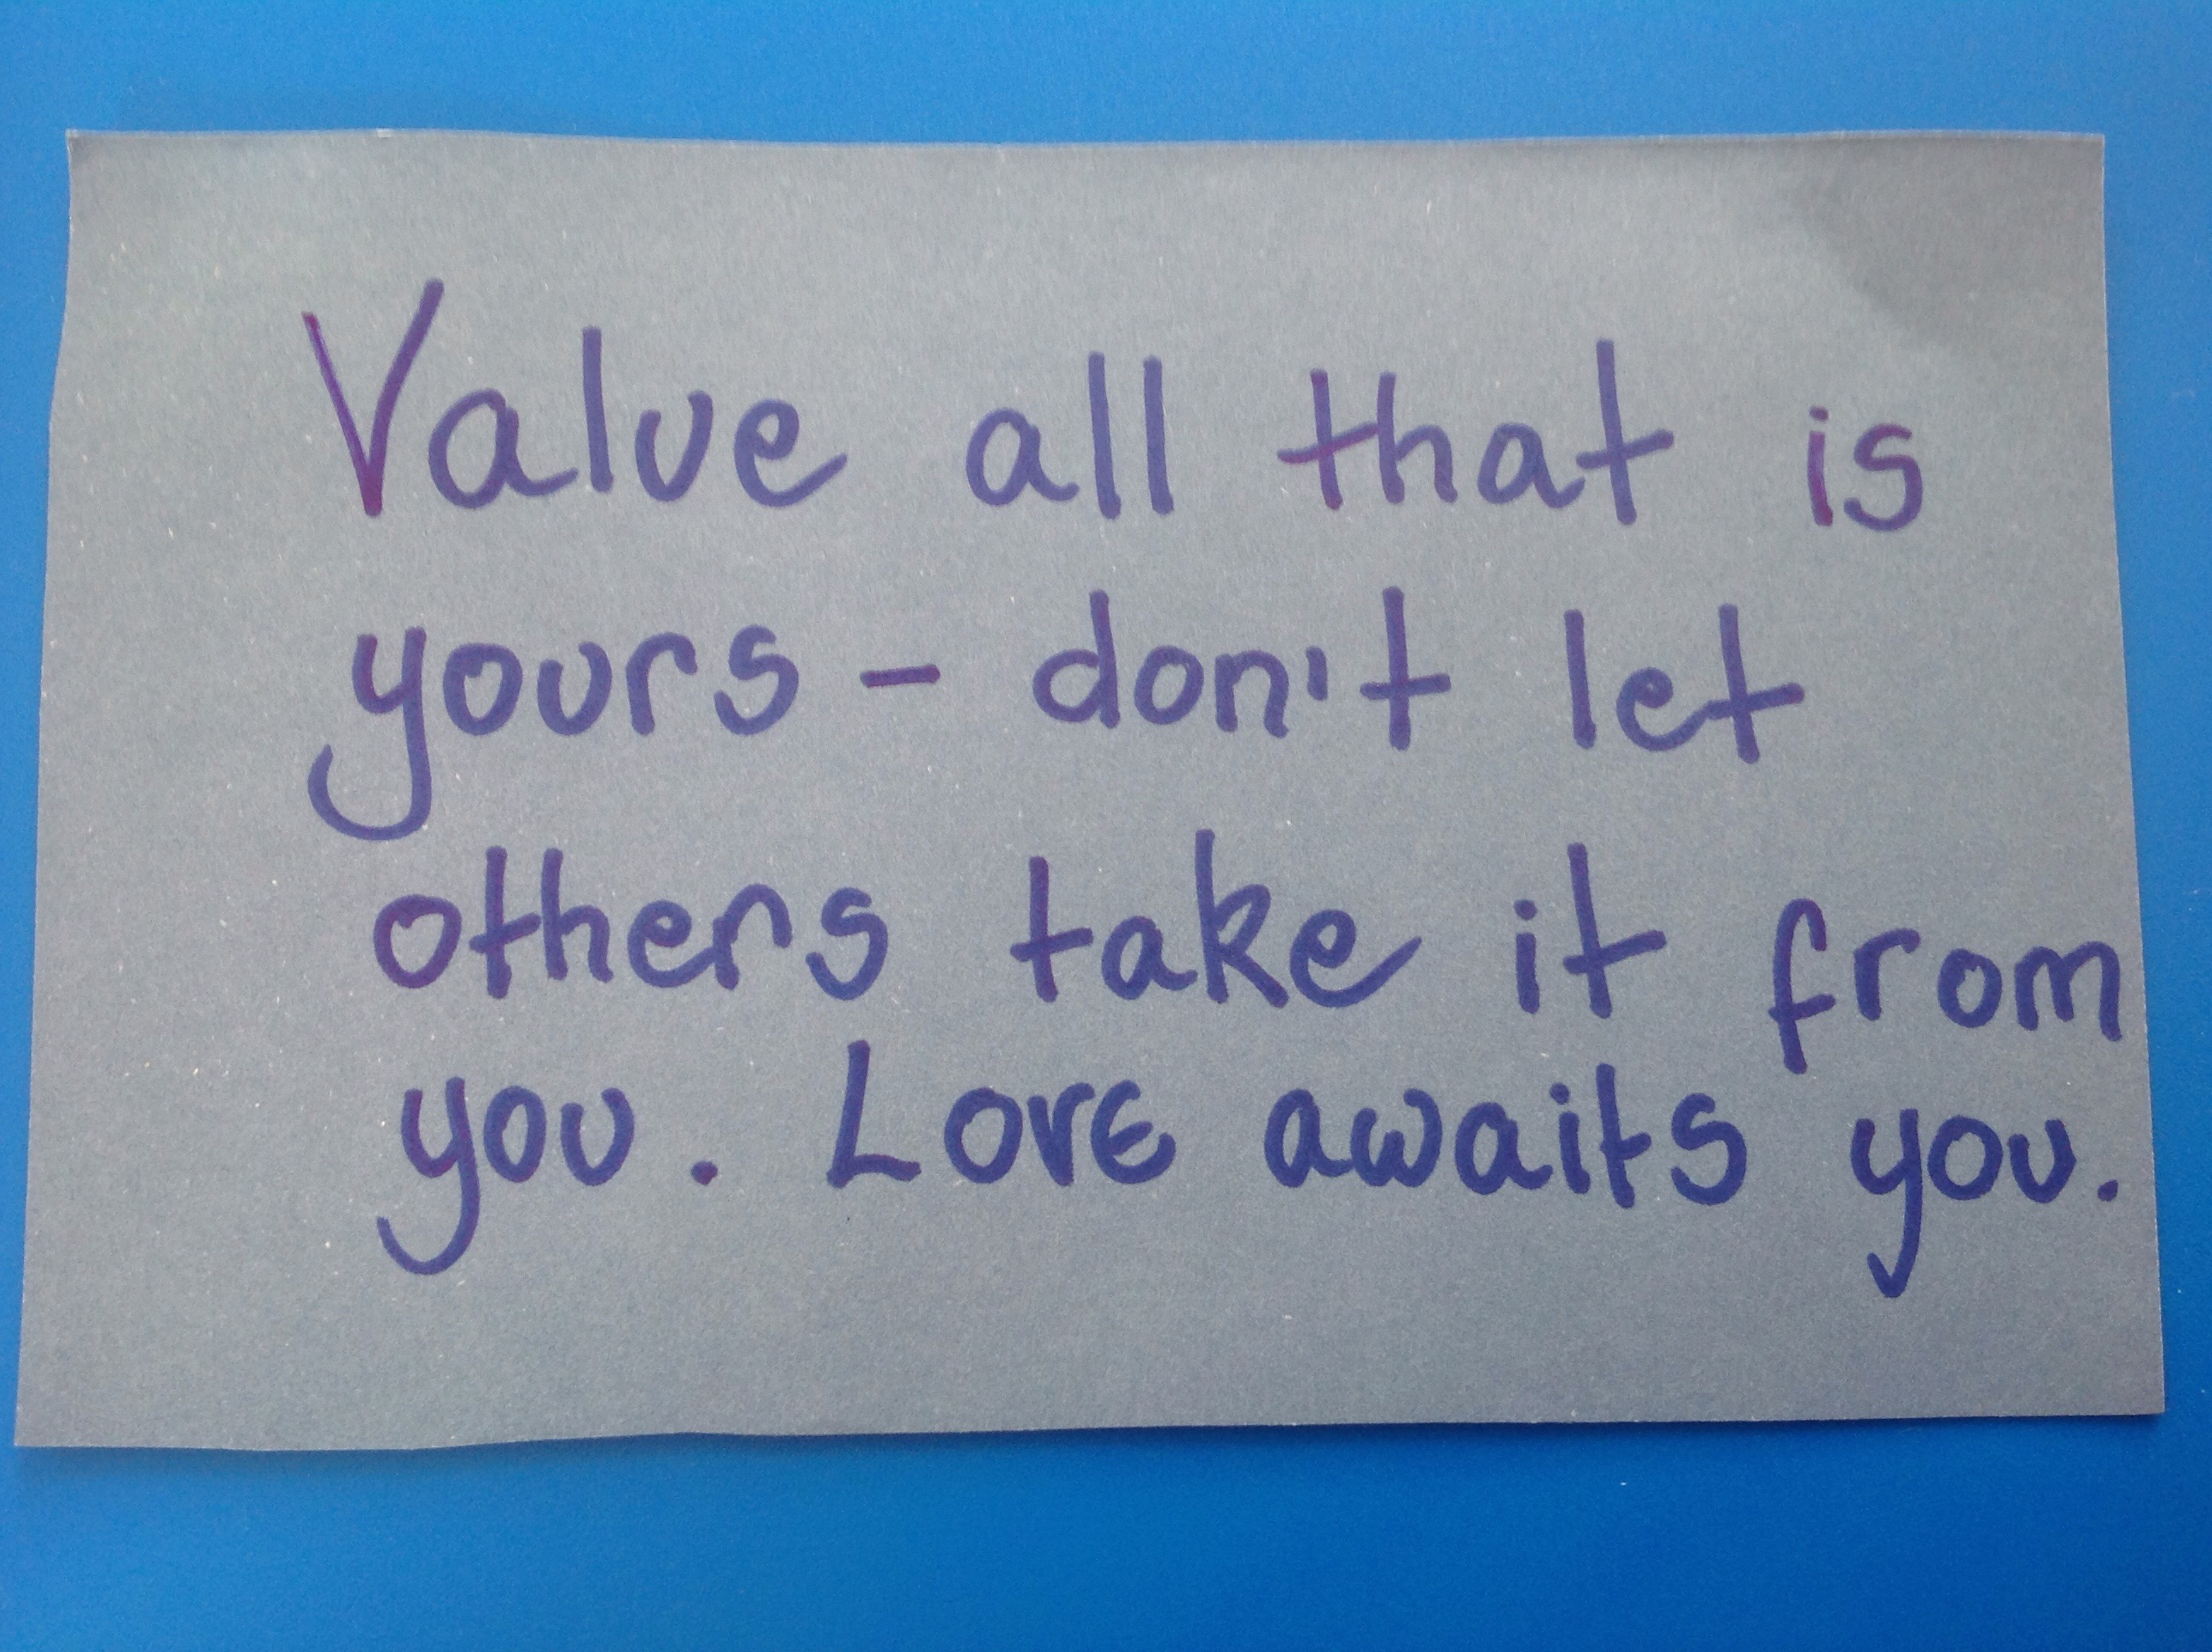 Value all that is
yours - don't let
others take it from
you. Love awaits you.